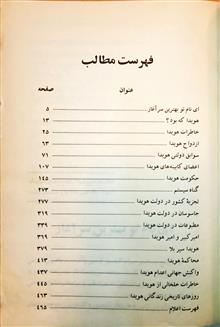 فهرست مطالب
عنوان صفحه
ای نام تو بهترین سرآغاز ۵
هویدا که بود؟ ۱۳
خاطرات هویدا ۲۵
ازدواج هویدا ۶۳
سوابق دولتی هویدا ۷۱
اعضای کابینه‌های هویدا ۱۰۷
حکومت هویدا ۱۴۵
گناه سیستم ۲۷۳
تجزیهٔ کشور در دولت هویدا ۲۷۷
جاسوسان در دولت هویدا ۳۱۹
مطبوعات در دولت هویدا ۳۳۹
امیرکبیر و امیر هویدا ۳۶۹
هویدا سیر بلا ۳۷۹
محاکمهٔ هویدا ۴۱۳
واکنش جهانی اعدام هویدا ۴۳۷
خاطرات خلخالی از هویدا ۴۴۵
روزهای تاریخی زندگانی هویدا ۴۶۳
فهرست اعلام ۴۶۵